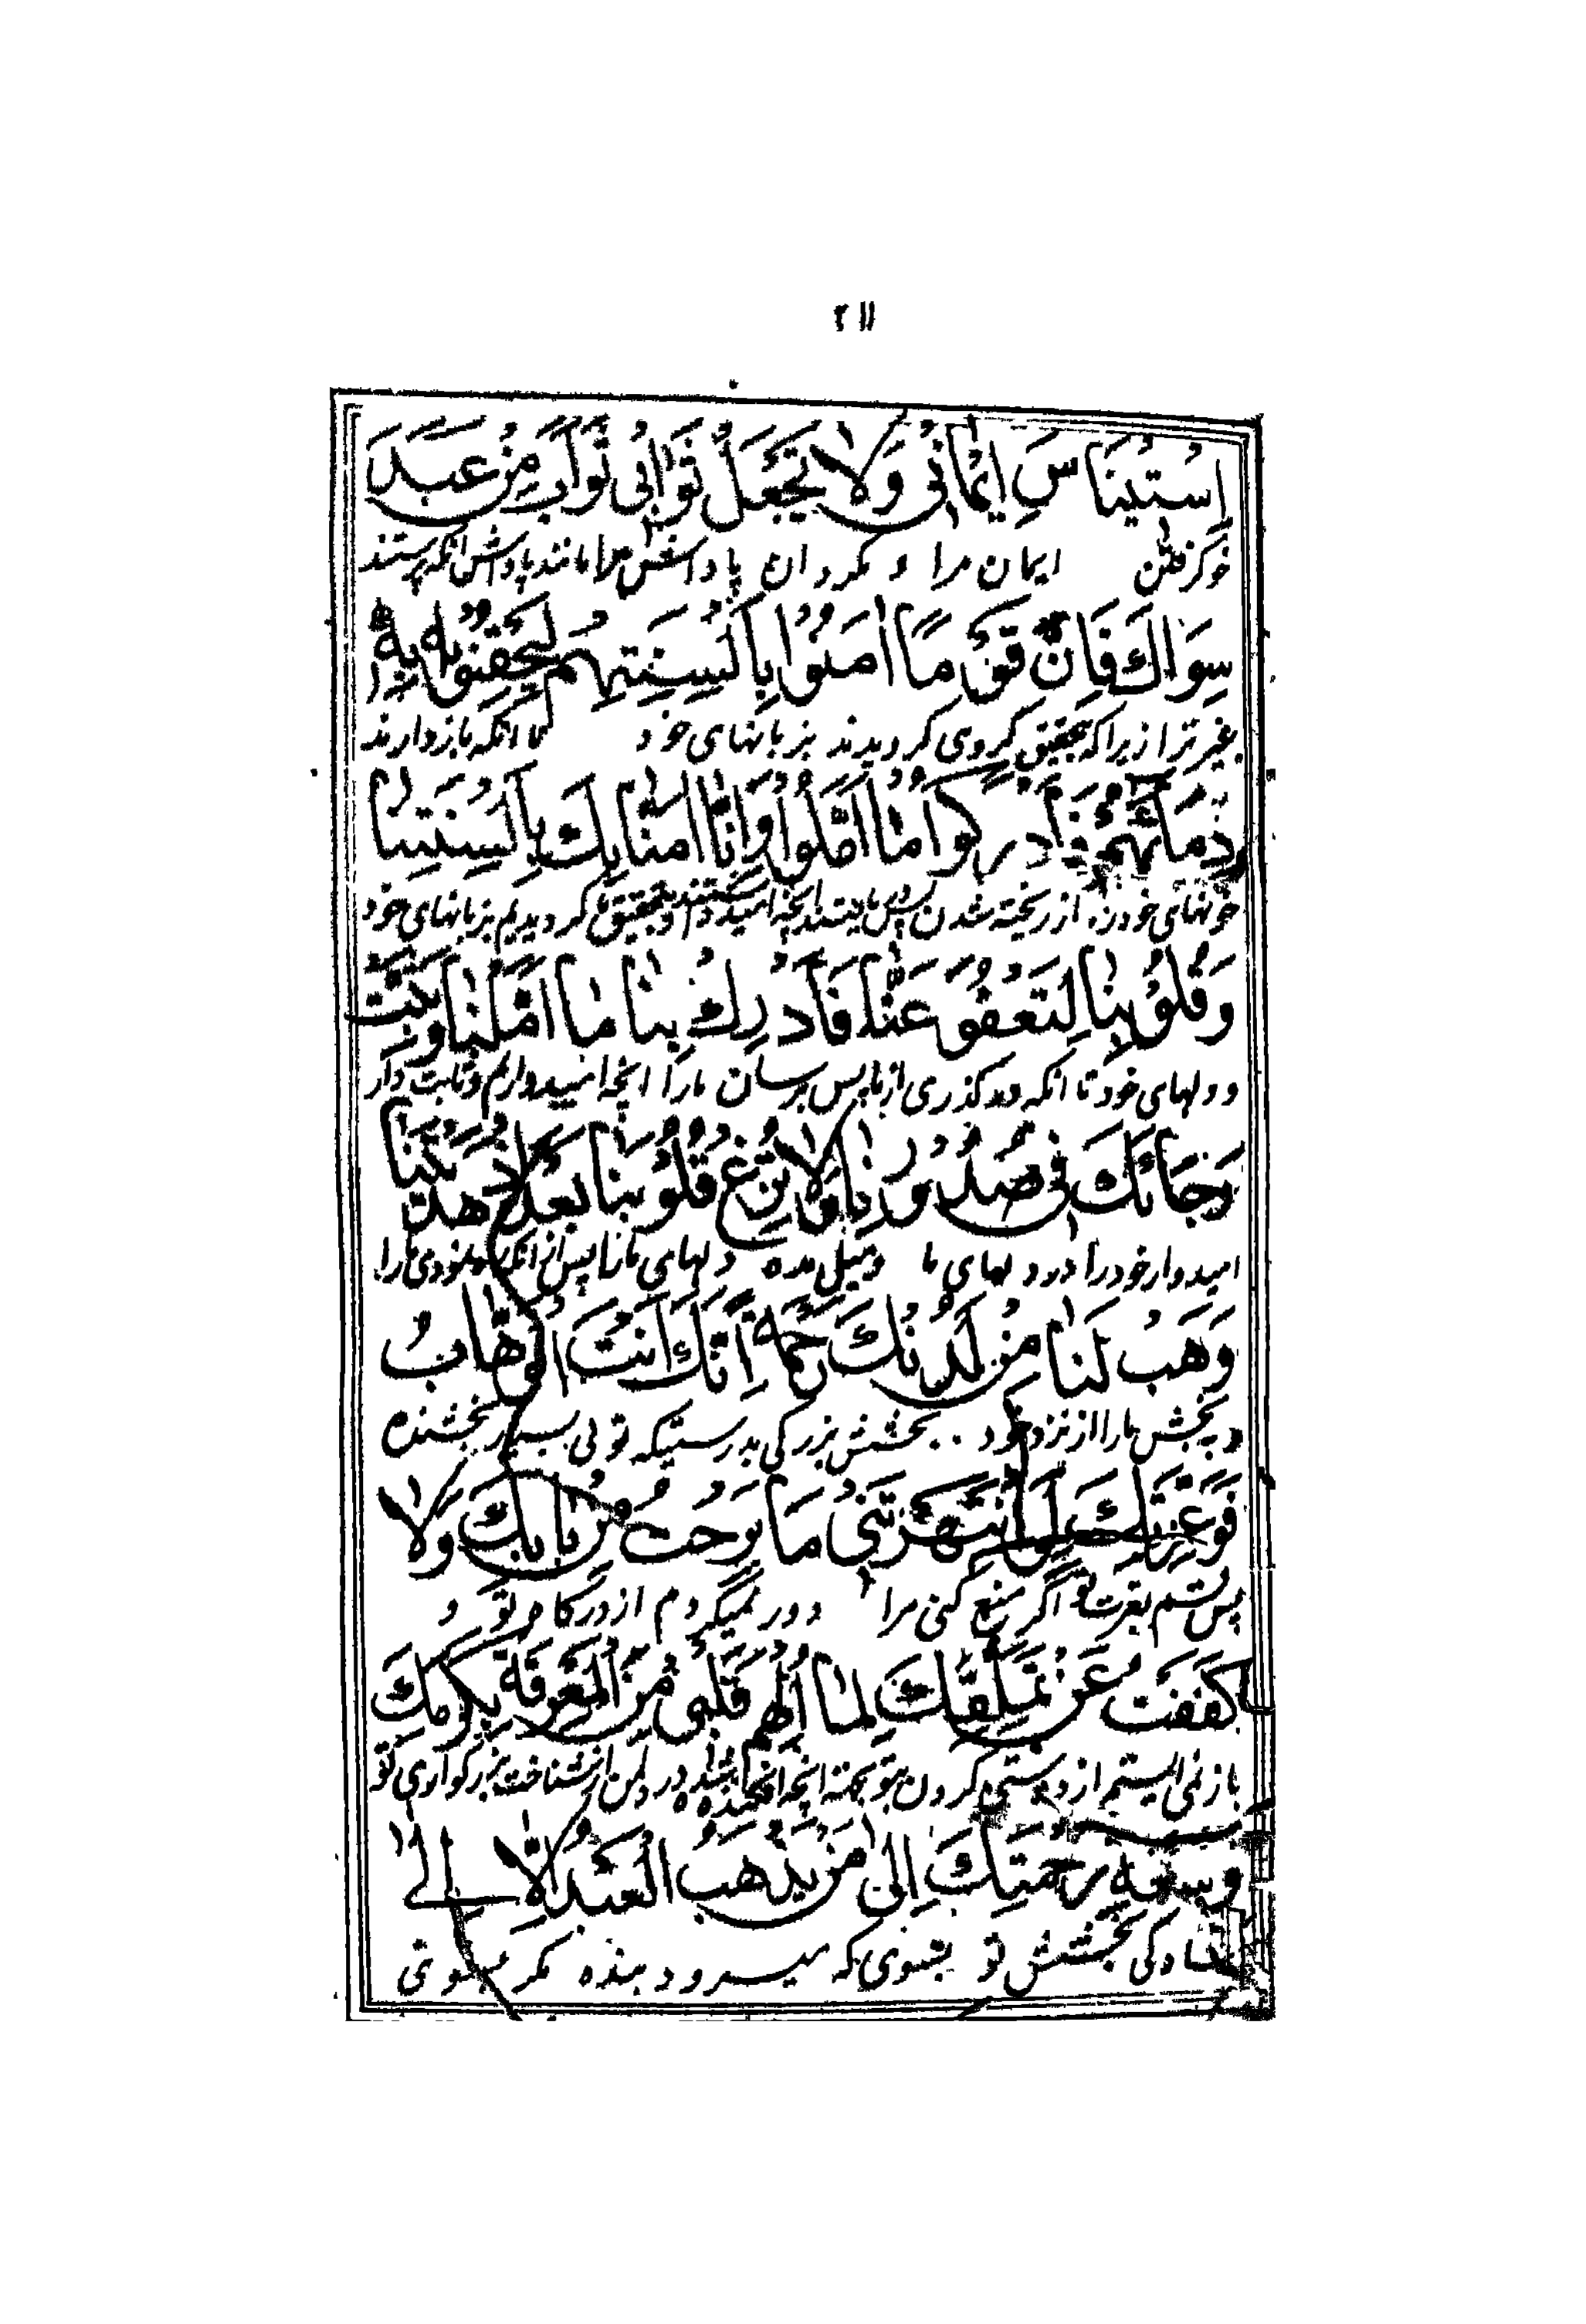 ۲۱۱
اِسْتیناسَ ایمٰانی وَلاٰ تَجْعَلْ ثَوٰابی ثَوٰابَ مَنْ عَبَدَ
خو گرفتن ایمان مرا و مگردان پاداش مرا مانند پاداش انکه پرستد
سِوٰاكَ فَاِنَّ قَوْمًا اٰمَنُوا بِاَلْسِنَتِهِمْ لِیَحْقِنُوا بِهِ
بغیر ترا زیرا که بتحقیق گروهی گرویدند بزبانهای خود تا انکه بازدارند
دِمٰائَهُمْ فَاَدْرَكُوا مٰا اَمَّلُوا وَاِنّٰا اٰمَنّٰا بِكَ بِاَلْسِنَتِنٰا
خونهای خود را از ریخته شدن پس یافتند انچه امید داشتند و بتحقیق ما گرویدیم بزبانهای خود
وَقُلُوبِنٰا لِتَعْفُوَ عَنّٰا فَاَدْرِكْ بِنٰا مٰا اَمَّلْنٰا وَثَبِّتْ
و دلهای خود تا انکه در گذری از ما پس برسان ما را انچه امیدواریم و ثابت دار
رَجٰائَكَ فی صُدُورِنٰا وَلاٰ تُزِغْ قُلُوبَنٰا بَعْدَ اِذْ هَدَیْتَنٰا
امیدوار خود را در دلهای ما و میل مده دلهای ما را پس از انکه راه نمودی ما را
وَهَبْ لَنٰا مِنْ لَدُنْكَ رَحْمَةً اِنَّكَ اَنْتَ الْوَهّٰابُ
و ببخش ما را از نزد خود بخشش بزرگی بدرستیکه توئی بسیار بخشنده
فَوَعِزَّتِكَ لَوِ انْتَهَرْتَنی مٰا بَرِحْتُ مِنْ بٰابِكَ وَلاٰ
پس قسم بعزت تو اگر منع کنی مرا دور نمیگردم از درگاه تو و
كَفَفْتُ عَنْ تَمَلُّقِكَ لِمٰا اُلْهِمَ قَلْبی مِنَ الْمَعْرِفَةِ بِكَرَمِكَ
باز نمی ایستم از دوستی کردن بتو بجهة انچه افکنده شده در دل من از شناخت بزرگواری تو
وَسَعَةِ رَحْمَتِكَ اِلیٰ مَنْ یَذْهَبُ الْعَبْدُ اِلاّٰ اِلیٰ
بخشش تو بسوی که میرود بنده مگر بسوی